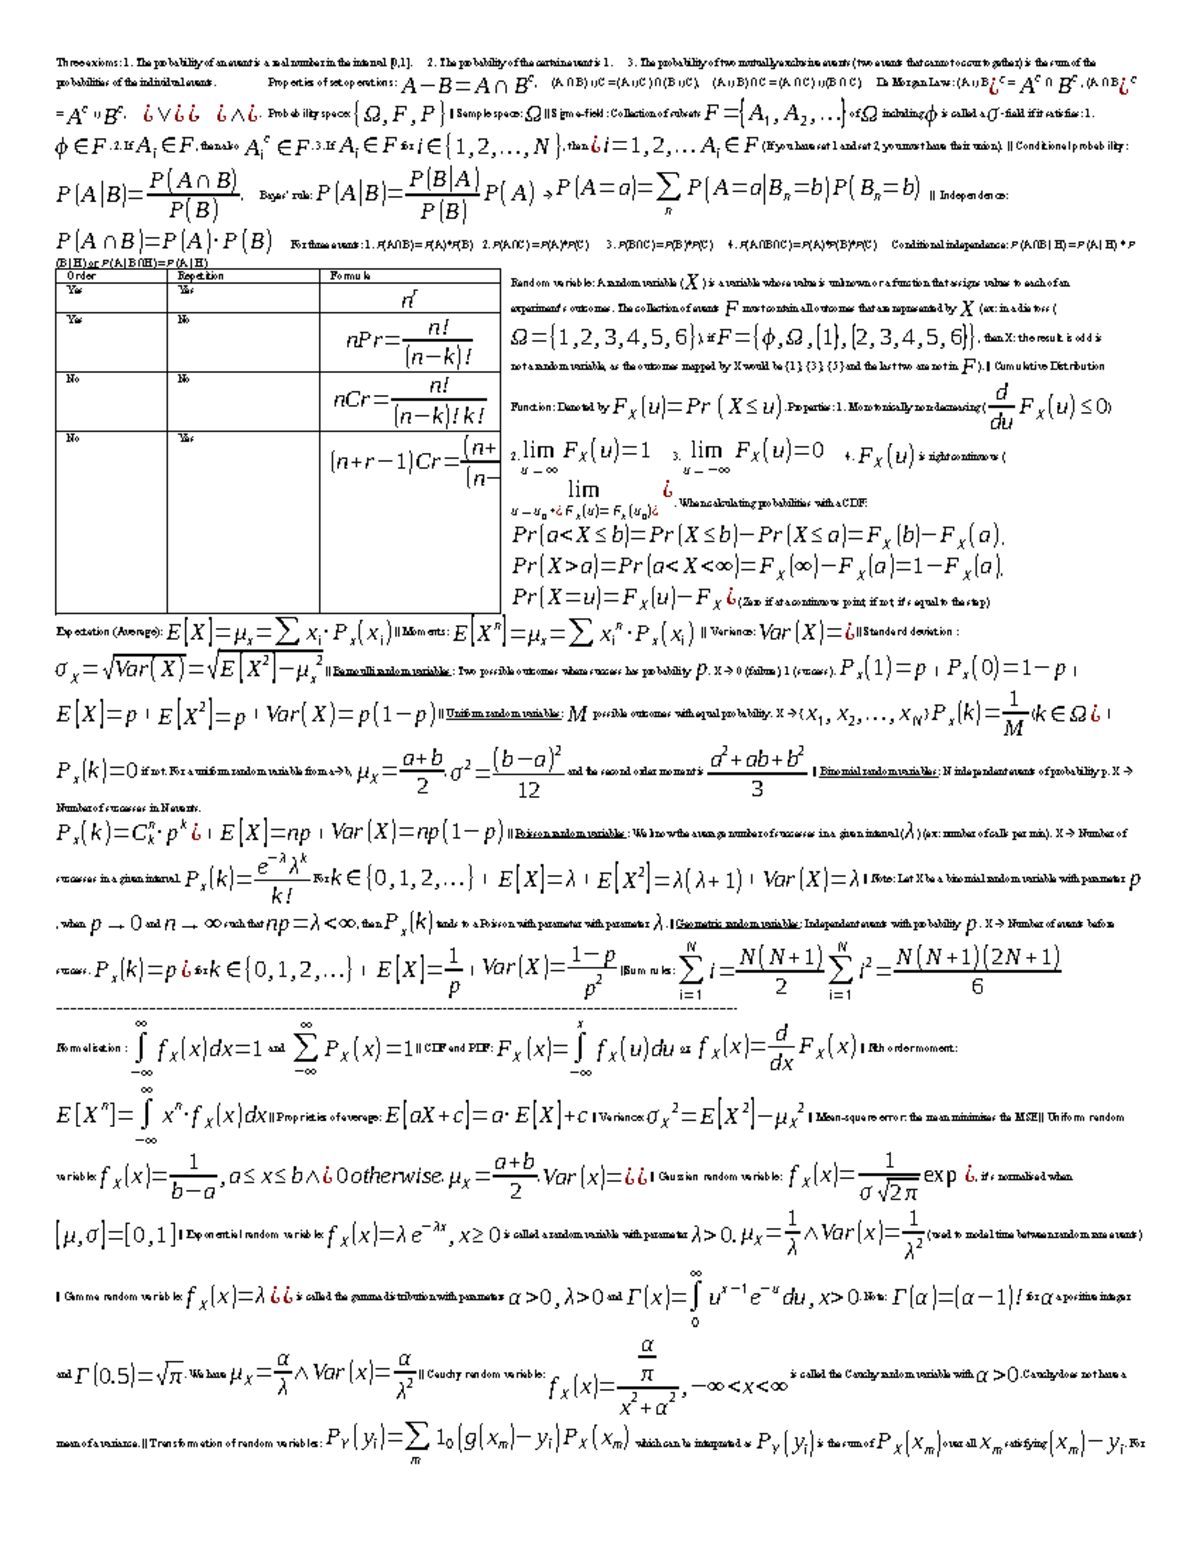 Three axioms: 1. The probability of an event is a real number in the interval [0,1]. 2. The probability of the certain event is 1. 3. The probability of two mutually exclusive events (two events that cannot occur together) is the sum of the
probabilities of the individual events. Properties of set operations: A−B=A∩Bᶜ, (A∩B)∪C=(A∪C)∩(B∪C), (A∪B)∩C=(A∩C)∪(B∩C) De Morgan Laws: (A∪B¿ᶜ = Aᶜ∩Bᶜ, (A∩B¿ᶜ
= Aᶜ∪Bᶜ. ¿∨¿¿ ¿∧¿. Probability space: {Ω,F,P} || Sample space: Ω || Sigma-field: Collection of subsets F={A₁,A₂,…} of Ω including ϕ is called a σ-field if it satisfies: 1.
ϕ∈F. 2. If Aᵢ∈F, then also Aᵢᶜ∈F. 3. If Aᵢ∈F for i∈{1,2,…,N}, then ¿i=1,2,…Aᵢ∈F (If you have set 1 and set 2, you must have their union). || Conditional probability:
P(A|B)=P(A∩B)/P(B). Bayes' rule: P(A|B)=P(B|A)/P(B) P(A) → P(A=a)=∑ₙ P(A=a|Bₙ=b)P(Bₙ=b) || Independence:
P(A∩B)=P(A)·P(B) For three events: 1. P(A∩B)=P(A)*P(B) 2. P(A∩C)=P(A)*P(C) 3. P(B∩C)=P(B)*P(C) 4. P(A∩B∩C)=P(A)*P(B)*P(C) Conditional independence: P(A∩B|H)=P(A|H) * P
(B|H) or P(A|B∩H)=P(A|H)
Order Repetition Formula
Yes Yes nʳ
Yes No nPr=n!/(n−k)!
No No nCr=n!/(n−k)!k!
No Yes (n+r−1)Cr=(n+/(n−
Random variable: A random variable (X) is a variable whose value is unknown or a function that assigns values to each of an
experiment's outcomes. The collection of events F must contain all outcomes that are represented by X (ex: in a die toss (
Ω={1,2,3,4,5,6}), if F={ϕ,Ω,{1},{2,3,4,5,6}}, then X: the result is odd is
not a random variable, as the outcomes mapped by X would be {1}, {3}, {5} and the last two are not in F). || Cumulative Distribution
Function: Denoted by F_X(u)=Pr(X≤u). Properties: 1. Monotonically non-decreasing (d/du F_X(u)≤0)
2. lim u→∞ F_X(u)=1 3. lim u→−∞ F_X(u)=0 4. F_X(u) is right continuous (
lim u→u₀⁺¿F_X(u)=F_X(u₀)¿ ¿. When calculating probabilities with a CDF:
Pr(a<X≤b)=Pr(X≤b)−Pr(X≤a)=F_X(b)−F_X(a).
Pr(X>a)=Pr(a<X<∞)=F_X(∞)−F_X(a)=1−F_X(a).
Pr(X=u)=F_X(u)−F_X¿ (Zero if at a continuous point, if not, it's equal to the step)
Expectation (Average): E[X]=μₓ=∑xᵢ·Pₓ(xᵢ) || Moments: E[Xⁿ]=μₓ=∑xᵢⁿ·Pₓ(xᵢ) || Variance: Var(X)=¿ || Standard deviation:
σ_X=√Var(X)=√E[X²]−μₓ² || Bernoulli random variables: Two possible outcomes where success has probability p. X → 0 (failure) 1 (success). Pₓ(1)=p | Pₓ(0)=1−p |
E[X]=p | E[X²]=p | Var(X)=p(1−p) || Uniform random variables: M possible outcomes with equal probability. X → {x₁,x₂,…,x_N} Pₓ(k)=1/M (k∈Ω¿ |
Pₓ(k)=0 if not. For a uniform random variable from a→b, μ_X=a+b/2. σ²=(b−a)²/12 and the second order moment is a²+ab+b²/3 || Binomial random variables: N independent events of probability p. X →
Number of successes in N events.
Pₓ(k)=Cₖⁿ·pᵏ¿ | E[X]=np | Var(X)=np(1−p) || Poisson random variables: We know the average number of successes in a given interval (λ) (ex: number of calls per min). X → Number of
successes in a given interval. Pₓ(k)=e^−λ λᵏ/k! For k∈{0,1,2,…} | E[X]=λ | E[X²]=λ(λ+1) | Var(X)=λ || Note: Let X be a binomial random variable with parameter p
, when p→0 and n→∞ such that np=λ<∞, then Pₓ(k) tends to a Poisson with parameter with parameter λ. || Geometric random variables: Independent events with probability p. X → Number of events before
success. Pₓ(k)=p¿ for k∈{0,1,2,…} | E[X]=1/p | Var(X)=1−p/p² || Sum rules: ∑ᵢ₌₁ᴺ i=N(N+1)/2 ∑ᵢ₌₁ᴺ i²=N(N+1)(2N+1)/6
Normalisation: ∫₋∞^∞ f_X(x)dx=1 and ∑₋∞^∞ P_X(x)=1 || CDF and PDF: F_X(x)=∫₋∞^x f_X(u)du or f_X(x)=d/dx F_X(x) || Nth order moment:
E[Xⁿ]=∫₋∞^∞ xⁿ·f_X(x)dx || Proprieties of average: E[aX+c]=a·E[X]+c || Variance: σ_X²=E[X²]−μ_X² || Mean-square error: the mean minimises the MSE || Uniform random
variable: f_X(x)=1/b−a, a≤x≤b∧¿0otherwise. μ_X=a+b/2. Var(x)=¿¿ || Gaussian random variable: f_X(x)=1/σ√2π exp ¿, it's normalised when
[μ,σ]=[0,1] || Exponential random variable: f_X(x)=λe^−λx, x≥0 is called a random variable with parameter λ>0. μ_X=1/λ∧Var(x)=1/λ² (used to model time between random rare events)
|| Gamma random variable: f_X(x)=λ¿¿ is called the gamma distribution with parameters α>0, λ>0 and Γ(x)=∫₀^∞ u^x−1 e^−u du, x>0. Note: Γ(α)=(α−1)! for α a positive integer
and Γ(0.5)=√π. We have μ_X=α/λ∧Var(x)=α/λ² || Cauchy random variable: f_X(x)=α/π/x²+α², −∞<x<∞ is called the Cauchy random variable with α>0. Cauchy does not have a
mean of a variance. || Transformation of random variables: P_Y(yᵢ)=∑ₘ 1₀(g(xₘ)−yᵢ)P_X(xₘ) which can be interpreted as P_Y(yᵢ) is the sum of P_X(xₘ) over all xₘ satisfying (xₘ)−yᵢ. For